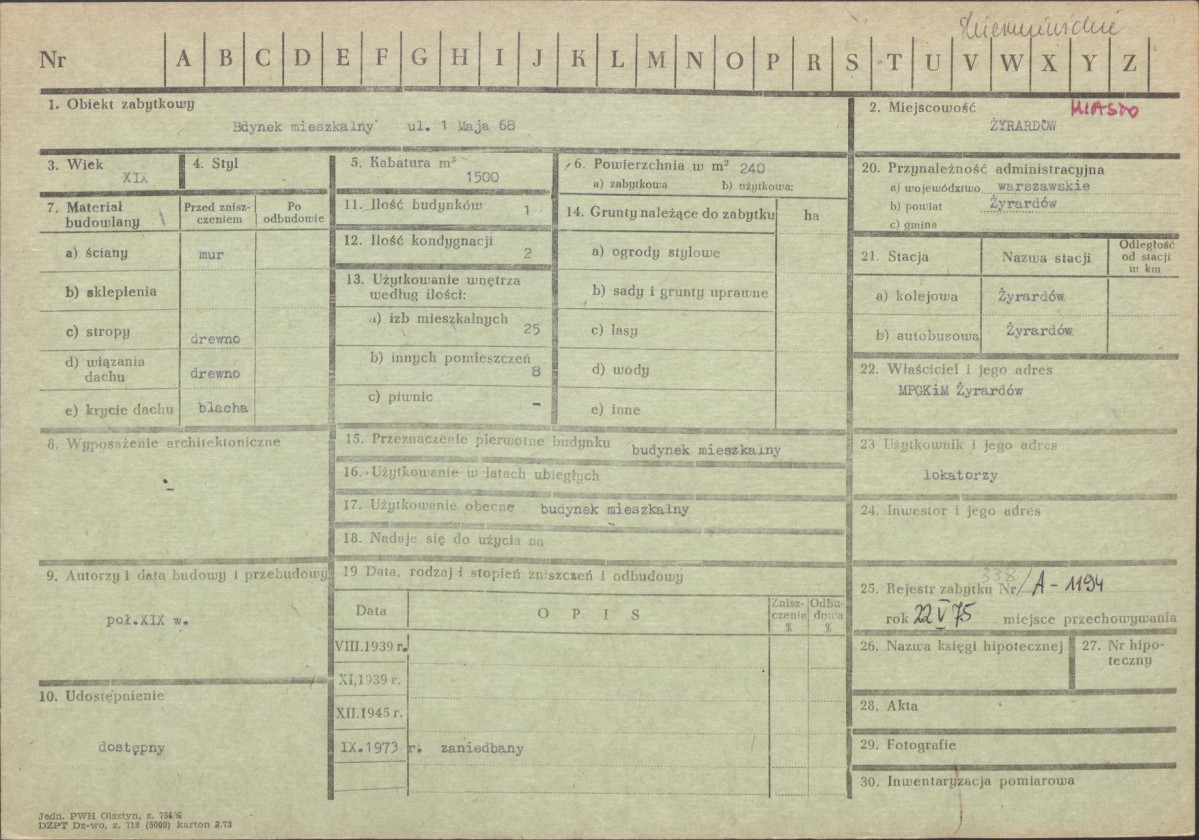 Nr A B C D E F G H I J K L M N O P R S T U V W X Y Z
1. Obiekt zabytkowy
Bdynek mieszkalny ul. 1 Maja 68
2. Miejscowość MIASTO
ŻYRARDÓW
3. Wiek
XIX
4. Styl
5. Kabatura m³
1500
6. Powierzchnia w m² 240
a) zabytkowa b) użytkowa:
7. Materiał budowlany
Przed zniszczeniem
Po odbudowie
a) ściany mur
b) sklepienia
c) stropy drewno
d) wiązania dachu drewno
e) krycie dachu blacha
8. Wyposażenie architektoniczne
-
9. Autorzy i data budowy i przebudowy
poł.XIX w.
10. Udostępnienie
dostępny
11. Ilość budynków 1
12. Ilość kondygnacji 2
13. Użytkowanie wnętrza
według ilości:
a) izb mieszkalnych 25
b) innych pomieszczeń 8
c) piwnic -
14. Grunty należące do zabytku ha
a) ogrody stylowe
b) sady i grunty uprawne
c) lasy
d) wody
e) inne
15. Przeznaczenie pierwotne budynku budynek mieszkalny
16. Użytkowanie w latach ubiegłych
17. Użytkowanie obecne budynek mieszkalny
18. Nadaje się do użycia na
19 Data, rodzaj i stopień zniszczeń i odbudowy
Data
OPIS
Zniszczenie %
Odbudowa %
VIII.1939 r.
XI,1939 r.
XII.1945 r.
IX.1973 r. zaniedbany
20. Przynależność administracyjna
a) województwo warszawskie
b) powiat Żyrardów
c) gmina
21. Stacja
Nazwa stacji
Odległość
od stacji
w km
a) kolejowa Żyrardów
b) autobusowa Żyrardów
22. Właściciel i jego adres
MPGKiM Żyrardów
23 Użytkownik i jego adres
lokatorzy
24. Inwestor i jego adres
25. Rejestr zabytku Nr 338/ A-1194
rok 22 V 75 miejsce przechowywania
26. Nazwa księgi hipotecznej
27. Nr hipoteczny
28. Akta
29. Fotografie
30. Inwentaryzacja pomiarowa
Jedn. PWH Olsztyn, z. 756/S
DZPT Dz-wo, z. 718 (5000) karton 2.73